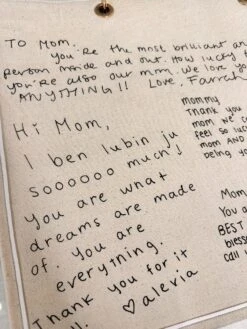 To Mom:
You're the most brilliant an
person inside and out. How lucky
you're also our mom. We love yo
ANYTHING!! Love, Farrah
Hi Mom,
I ben lubin ju
soooooo much!
You are what
dreams are made
of. You are
everything.
Thank you for it
♡ alevia
mommy
Thank you
mom. We c
feel so lu
mom AND
being yo
Mom
You a
BEST
bless
call